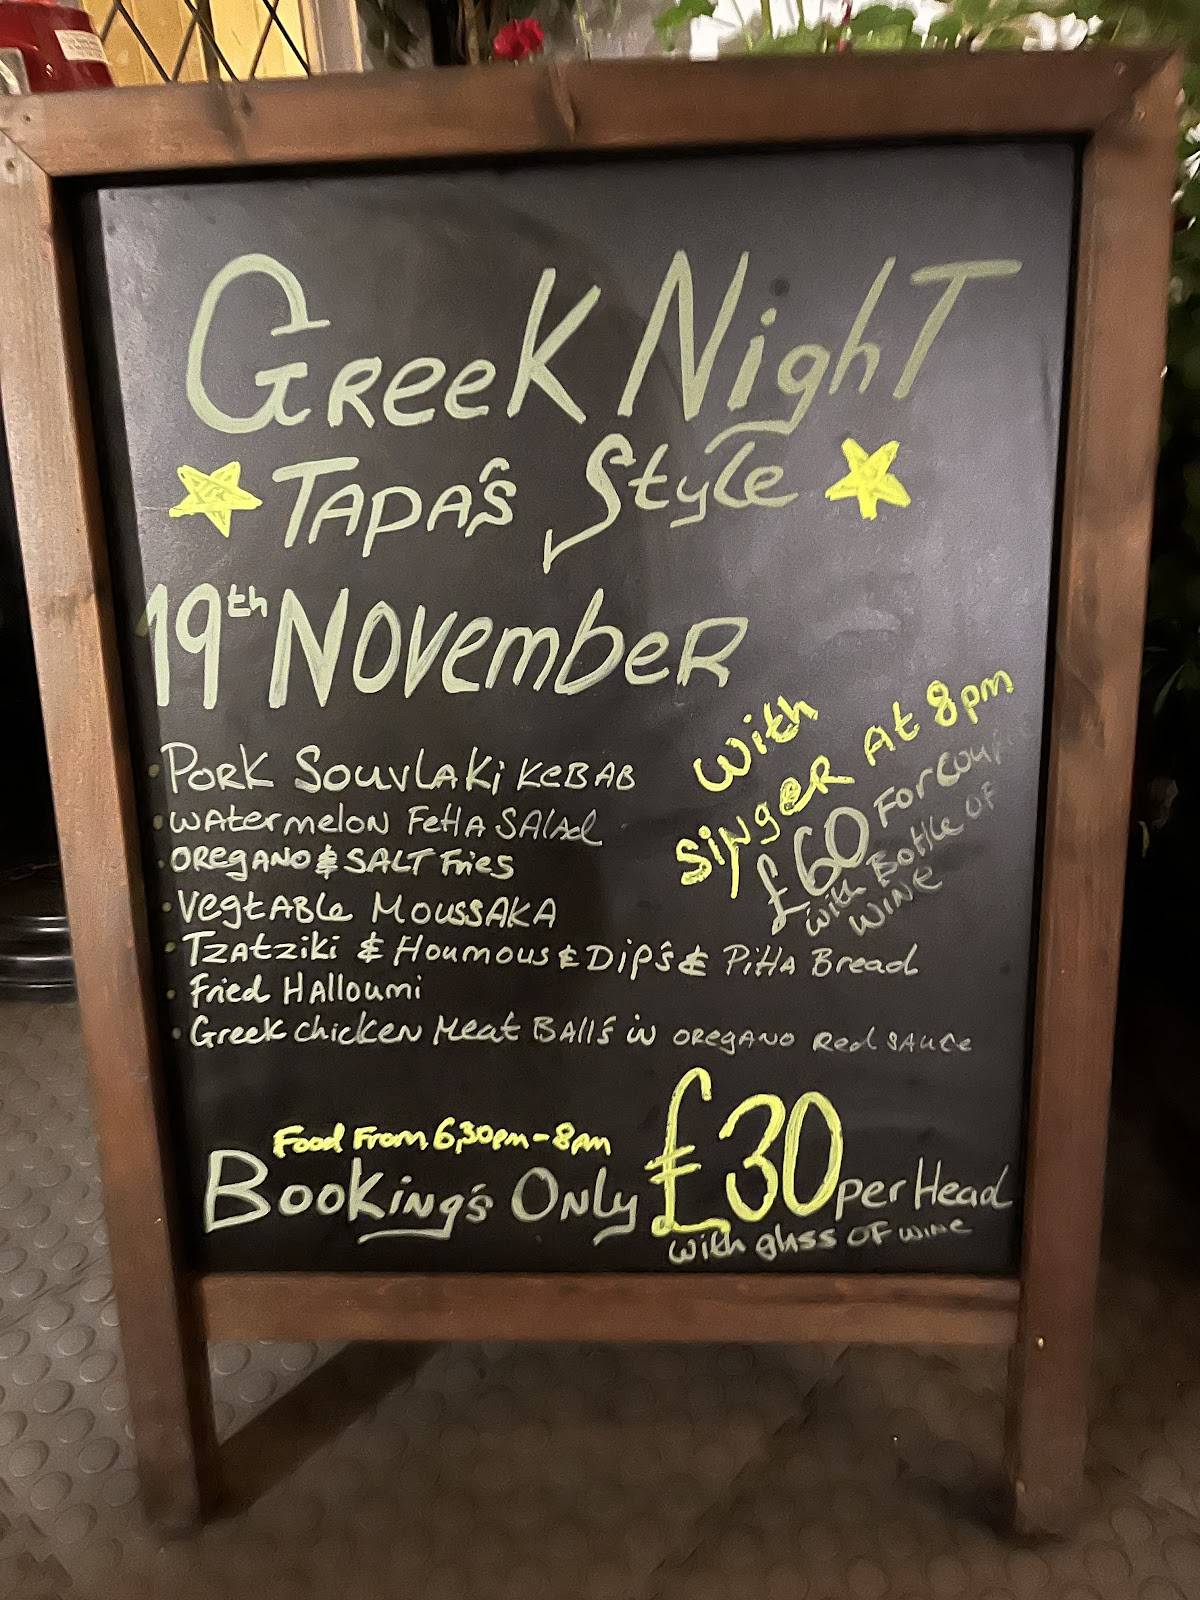 Greek Night
Tapa's Style
19th November
With
Singer At 8pm
£60 For Couple
with Bottle of
wine
· Pork Souvlaki Kebab
· Watermelon Fetta Salad
· Oregano & Salt Fries
· Vegtable Moussaka
· Tzatziki & Houmous & Dip's & Pitta Bread
· Fried Halloumi
· Greek chicken Meat Ball's in oregano Red sauce
Food From 6,30pm - 8pm
Booking's Only £30 per Head
with glass of wine